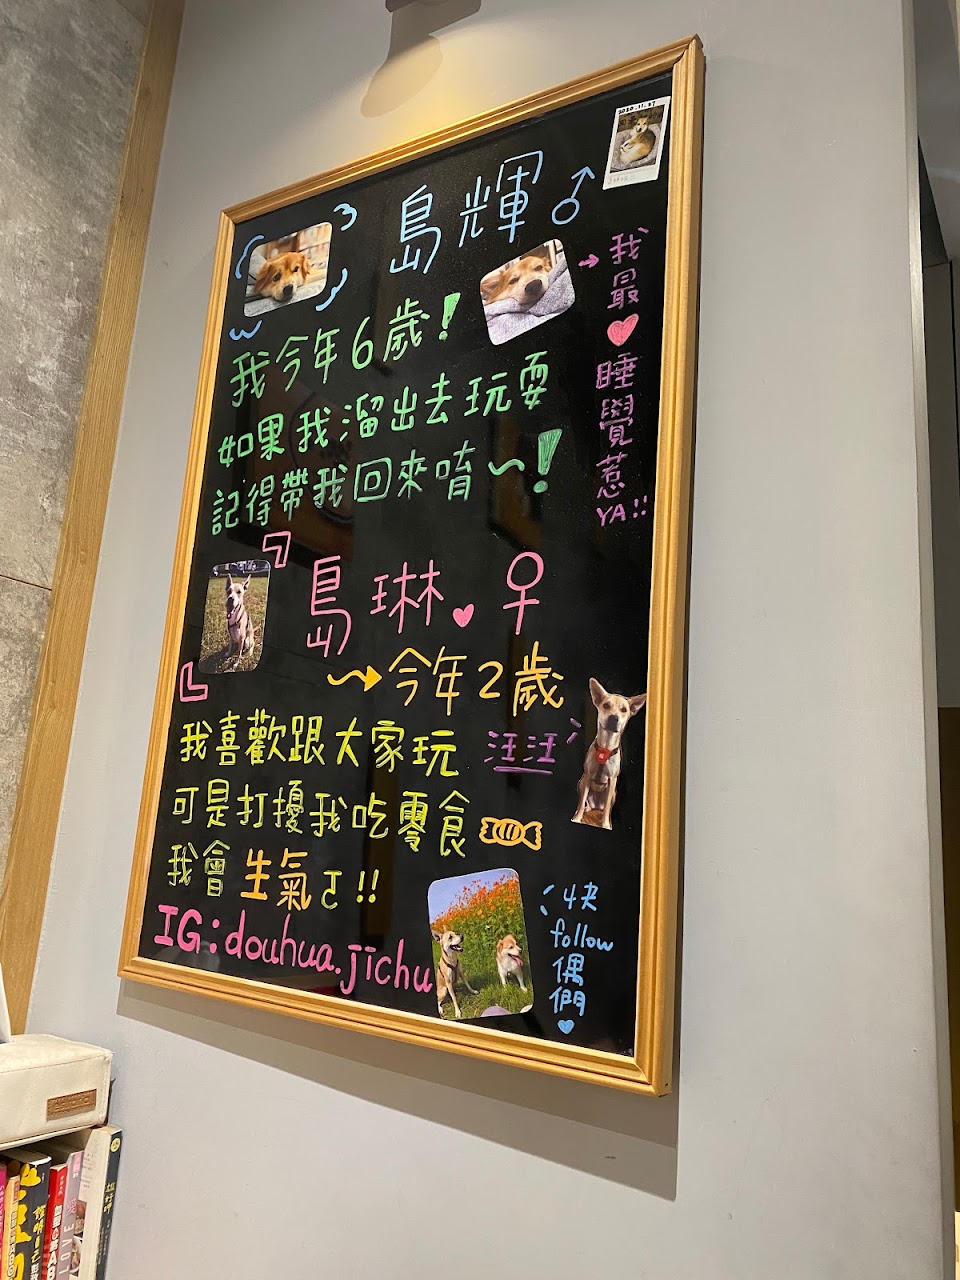 2020.11.27
島輝♂
我今年6歲!
如果我溜出去玩耍
記得帶我回來唷~!
→我最♥睡覺惹YA!!
島琳♥♀
→今年2歲
我喜歡跟大家玩
汪汪
可是打擾我吃零食
我會生氣ㄛ!!
IG:douhua.jichu
快
follow
偶
們
♥